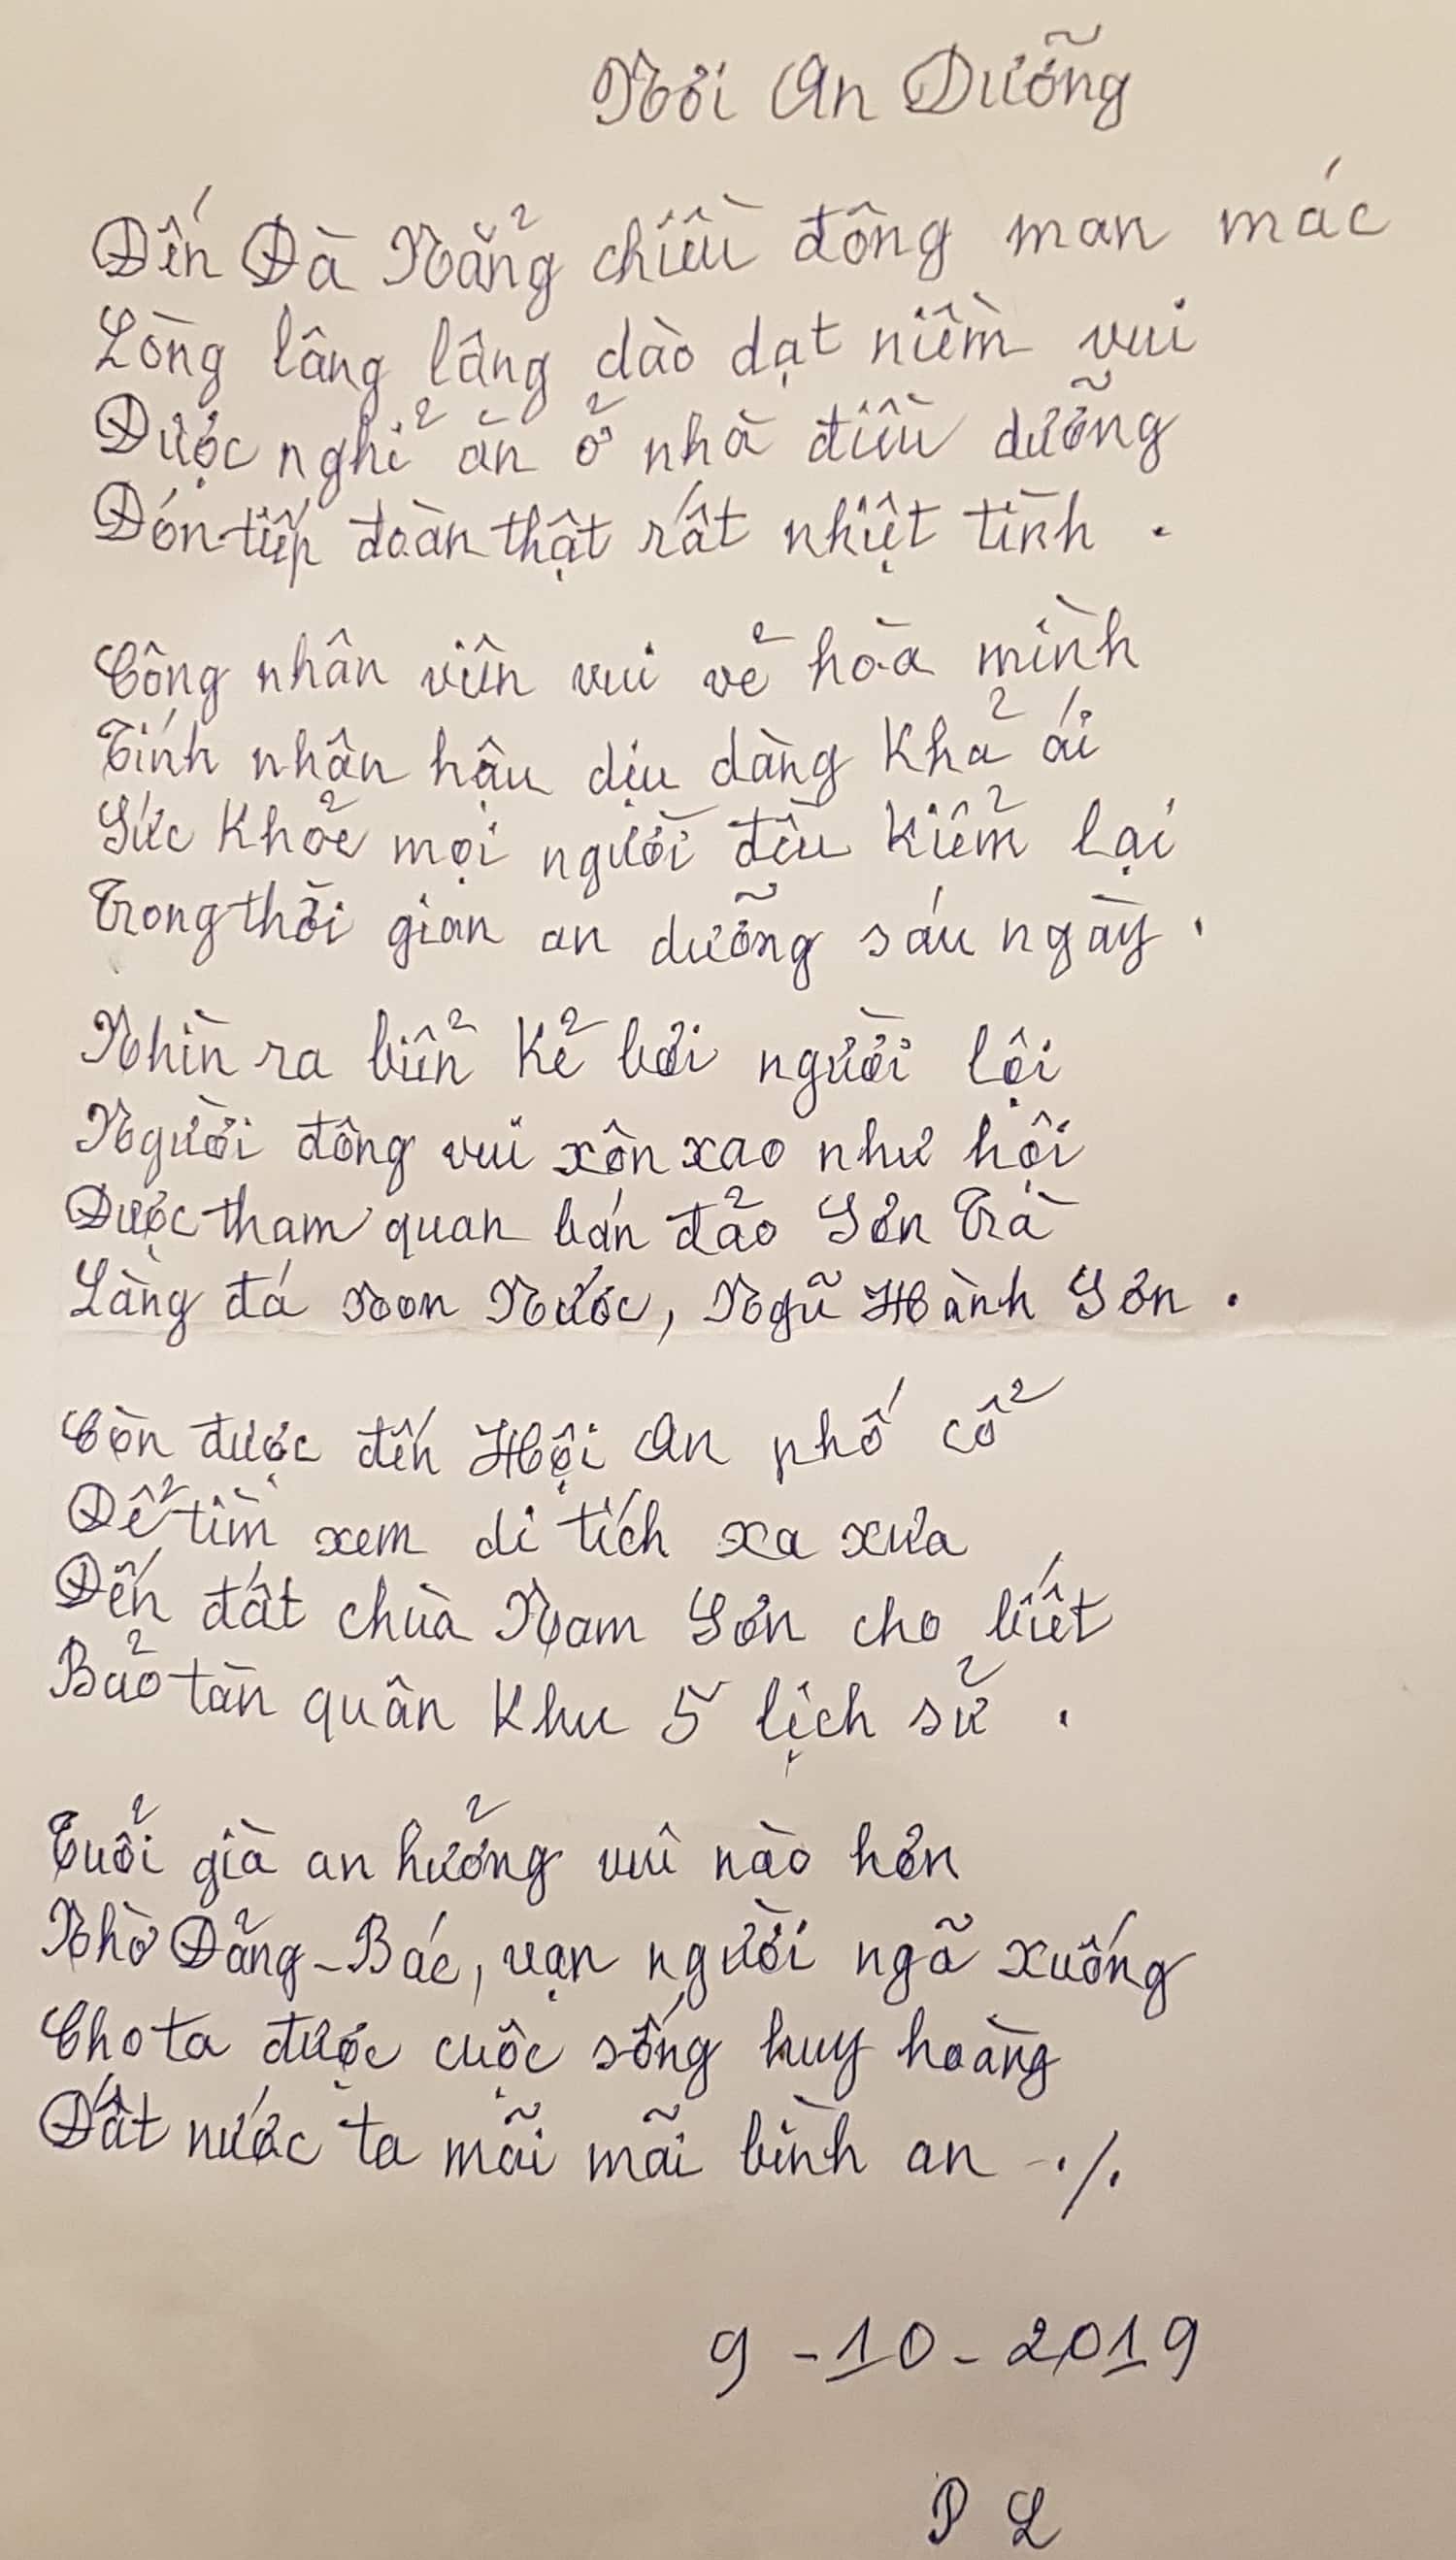 Nơi An Dưỡng
Đến Đà Nẵng chiều đông man mác
Lòng lâng lâng dào dạt niềm vui
Được nghỉ ăn ở nhà điều dưỡng
Đón tiếp đoàn thật rất nhiệt tình .
Công nhân viên vui vẻ hòa mình
Tính nhân hậu dịu dàng khả ái
Sức khỏe mọi người đều kiểm lại
Trong thời gian an dưỡng sáu ngày .
Nhìn ra biển kẻ bơi người lội
Người đông vui xôn xao như hội
Được tham quan bán đảo Sơn Trà
Làng đá Non Nước, Ngũ Hành Sơn .
Còn được đến Hội An phố cổ
Để tìm xem di tích xa xưa
Đến đất chùa Nam Sơn cho biết
Bảo tàn quân khu 5 lịch sử .
Tuổi già an hưởng vui nào hơn
Nhờ Đảng - Bác, vạn người ngã xuống
Cho ta được cuộc sống huy hoàng
Đất nước ta mãi mãi bình an ./.
9 - 10 - 2019
P L